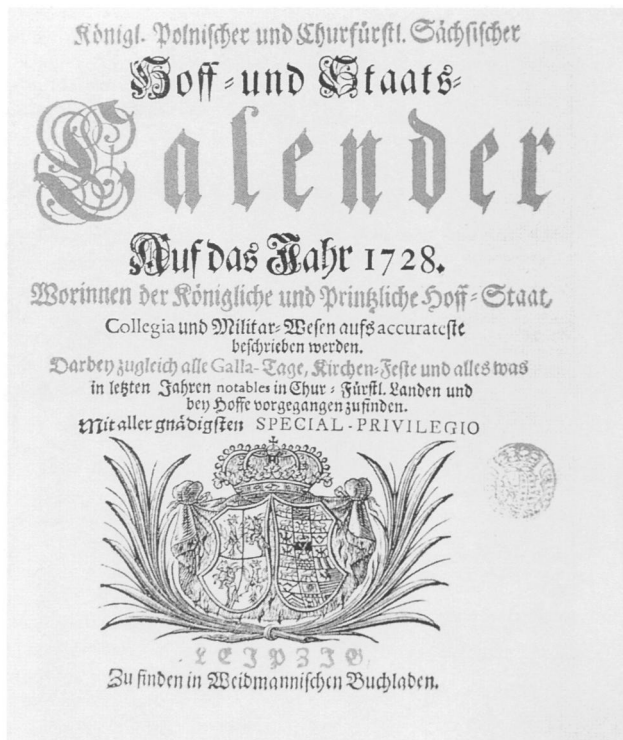 Königl. Polnischer und Churfürstl. Sächsischer
Hoff-und Staats-
Calender
Auf das Jahr 1728.
Worinnen der Königliche und Printzliche Hoff-Staat,
Collegia und Militar-Wesen aufs accurateste
beschrieben werden.
Darbey zugleich alle Galla-Tage, Kirchen-Feste und alles was
in letzten Jahren notables in Chur-Fürstl. Landen und
bey Hoffe vorgegangen zu finden.
Mit aller gnädigsten SPECIAL-PRIVILEGIO
LEIPZIG,
Zu finden in Weidmannischen Buchladen.